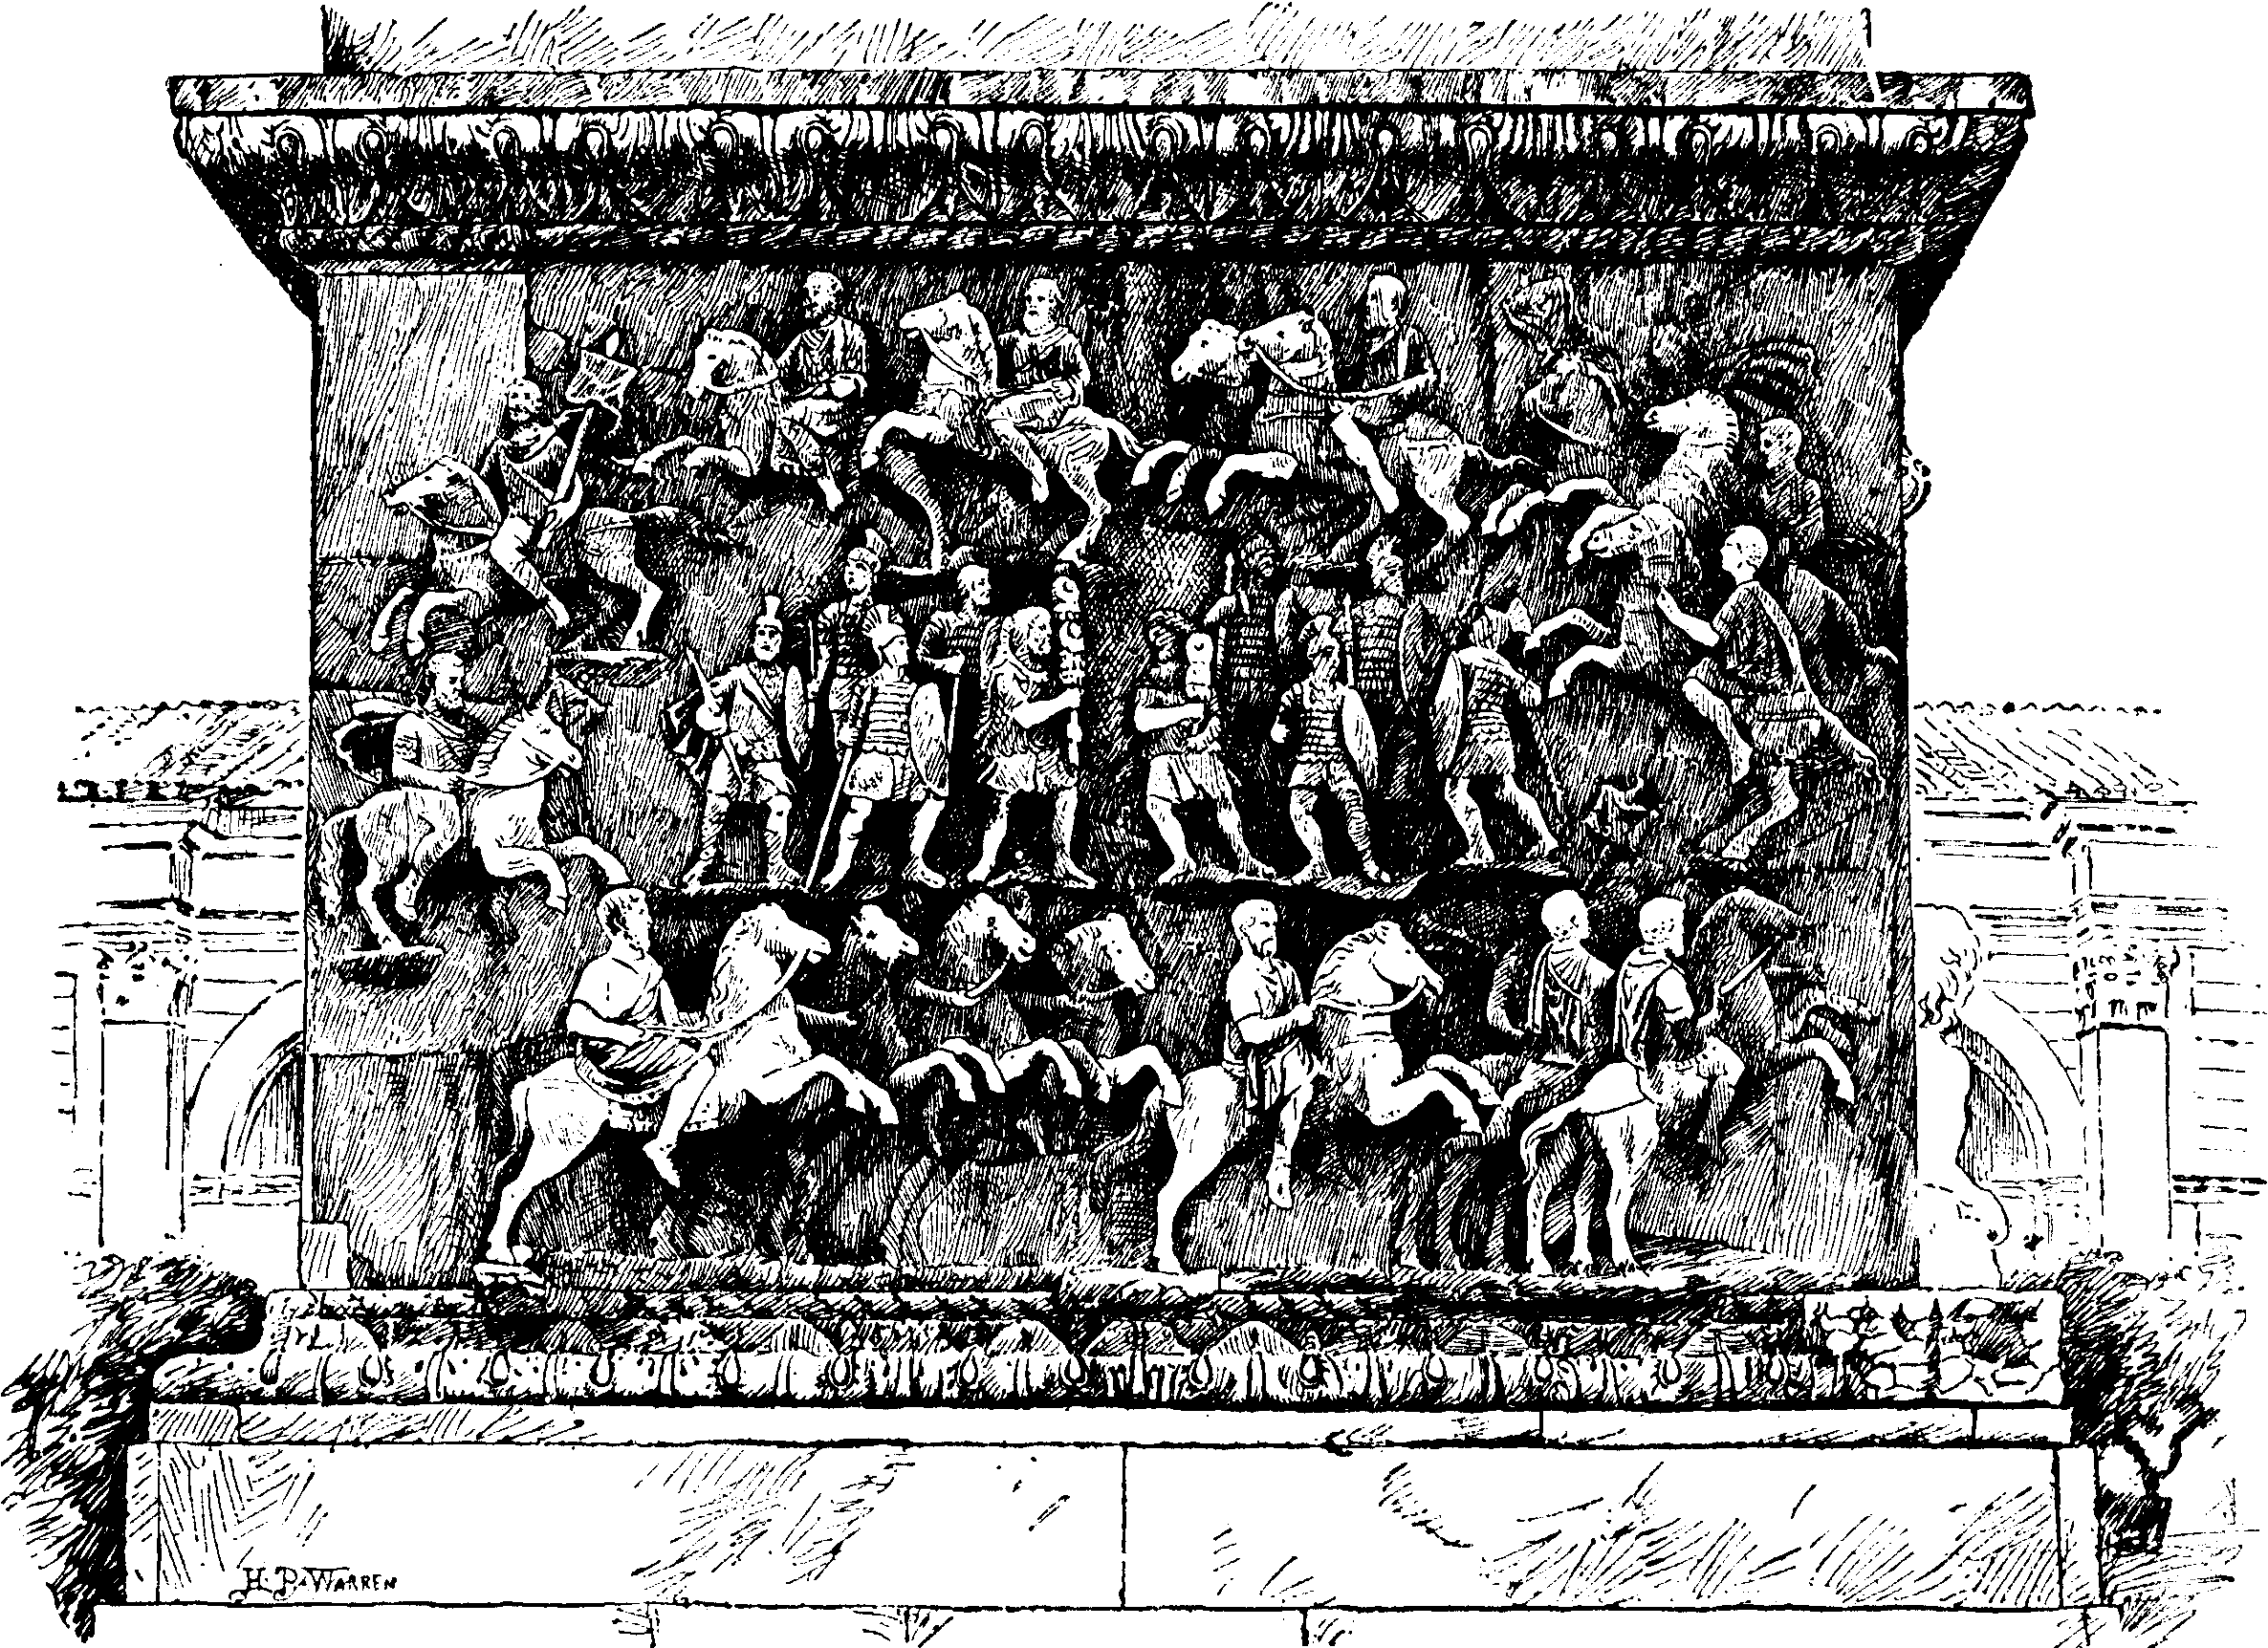 H. P. WARREN